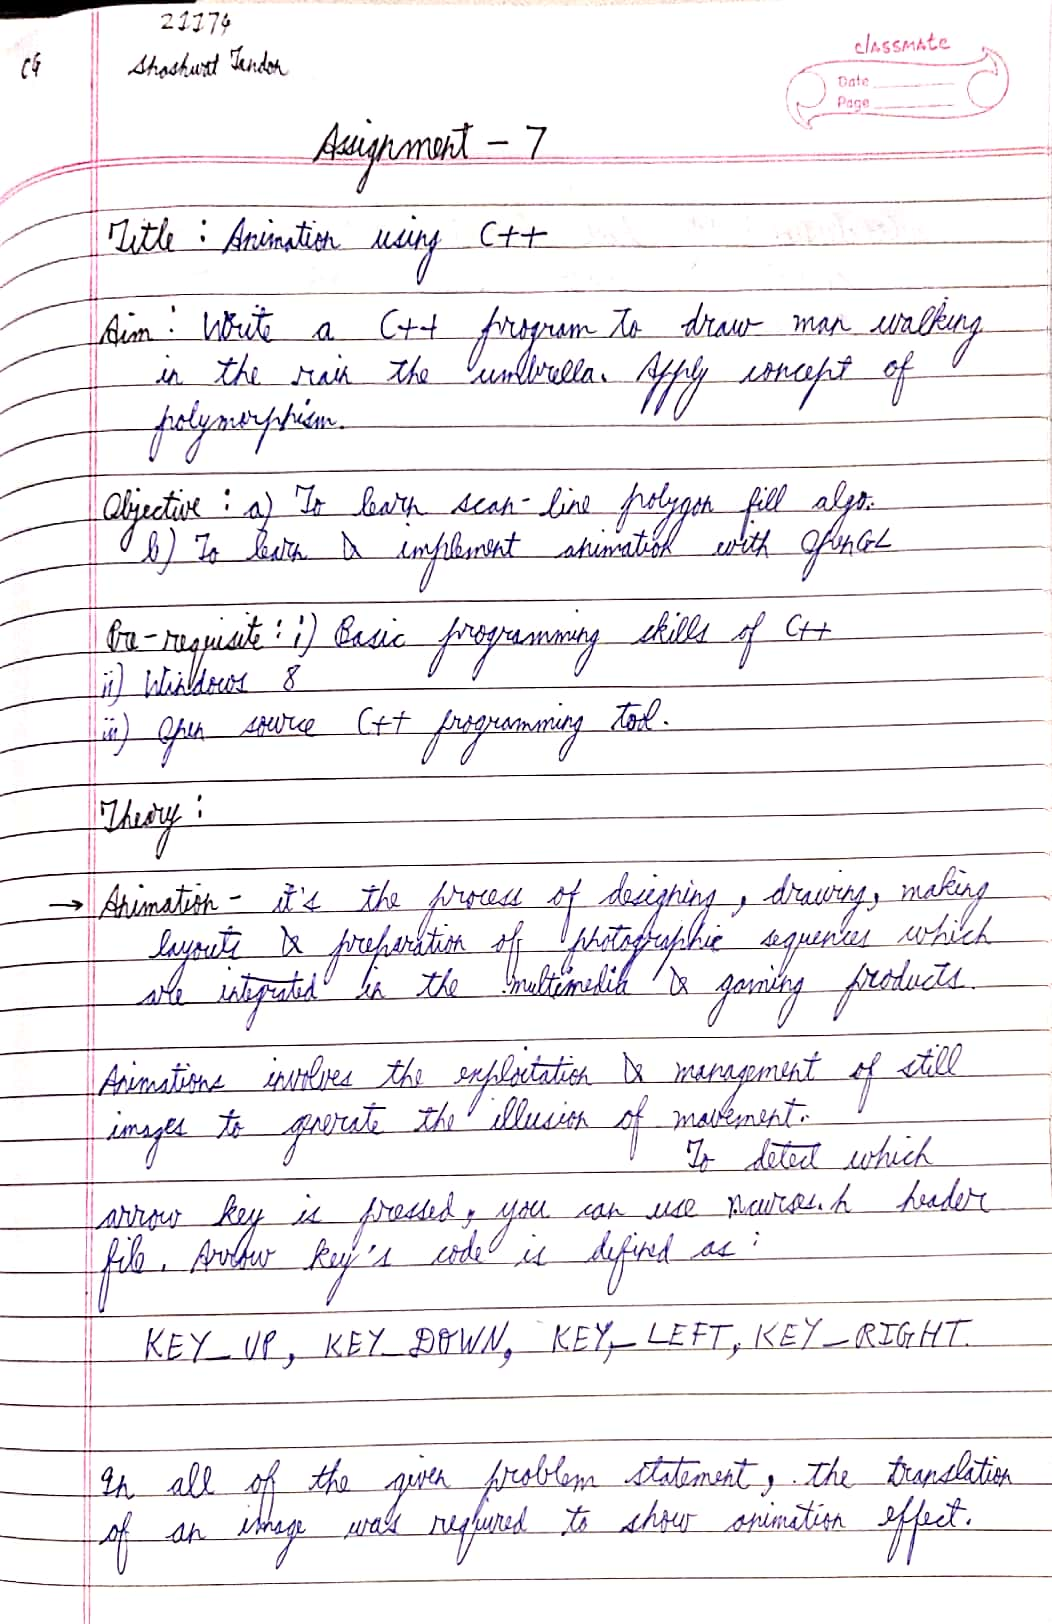 21174
CG
Shashwat Tandon
classmate
Date
Page
Assignment - 7
Title : Animation using C++
Aim : Write a C++ program to draw man walking
in the rain the umbrella. Apply concept of
polymorphism.
Objective : a) To learn scan-line polygon fill algo.
b) To learn & implement animation with OpenGL
Pre-requisite : i) Basic programming skills of C++
ii) Windows 8
iii) Open source C++ programming tool.
Theory :
→ Animation - it's the process of designing, drawing, making
layouts & preparation of photographic sequences which
are integrated in the multimedia & gaming products.
Animations involves the exploitation & management of still
images to generate the illusion of movement.
To detect which
arrow key is pressed, you can use ncurses.h header
file. Arrow key's code is defined as :
KEY_UP, KEY_DOWN, KEY_LEFT, KEY_RIGHT.
In all of the given problem statement, the translation
of an image was required to show animation effect.